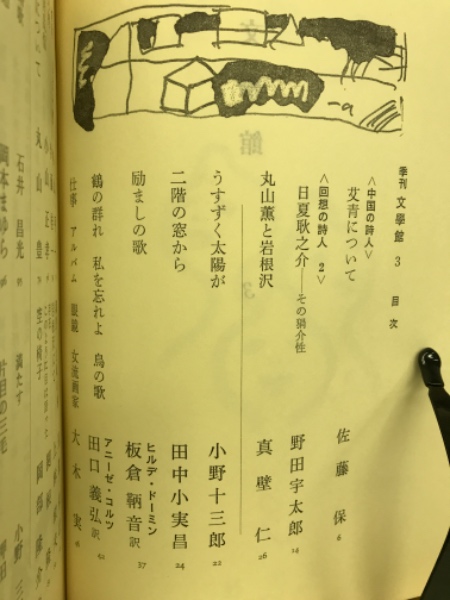 季刊 文學館 3 目次
<中国の詩人>
艾青について 佐藤 保 6
<回想の詩人 2>
日夏耿之介――その狷介性 野田宇太郎 14
丸山薫と岩根沢 真壁 仁 26
うすずく太陽が 小野十三郎 22
二階の窓から 田中小実昌 24
励ましの歌 ヒルデ・ドーミン
板倉鞆音 訳 37
鶴の群れ 私を忘れよ 鳥の歌 アニーゼ・コルツ
田口義弘 訳 42
仕事 アルバム 眼鏡 女流画家 大木 実
丸山 豊
石井昌光
岡本まゆら
満たす
片目の三毛
小野 三